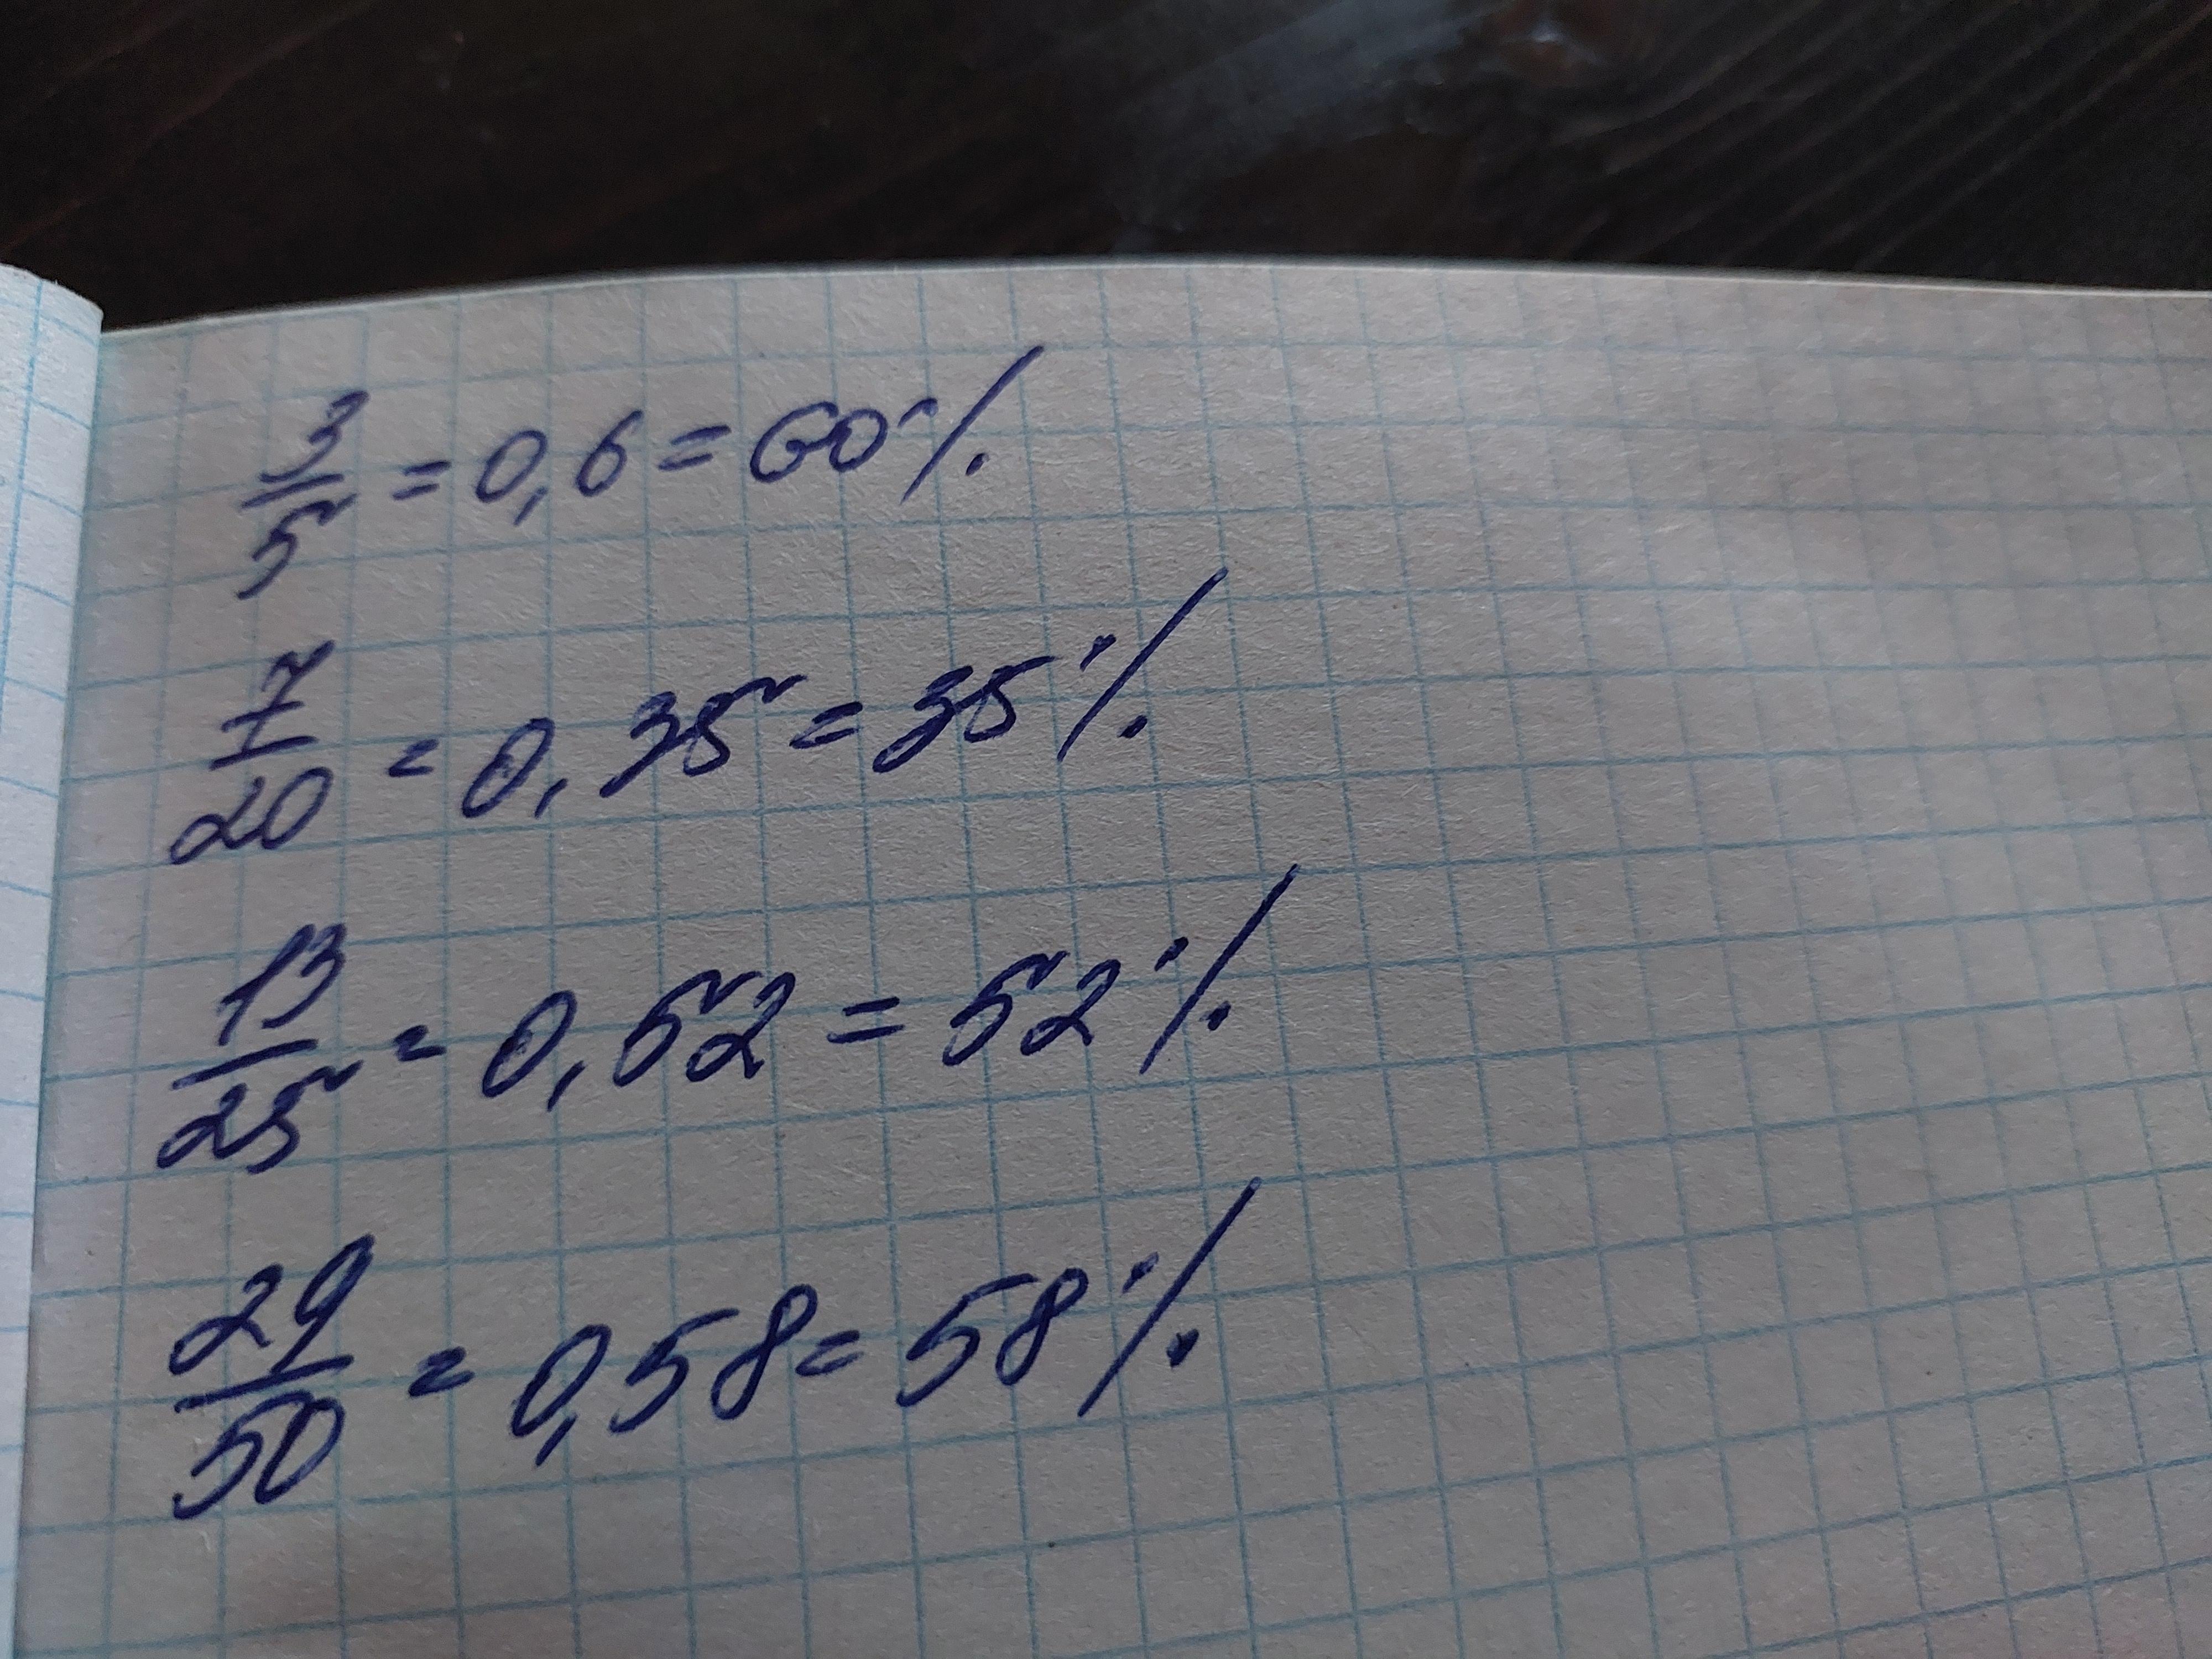 3/5 = 0,6 = 60%
7/20 = 0,35 = 35%
13/25 = 0,52 = 52%
29/50 = 0,58 = 58%